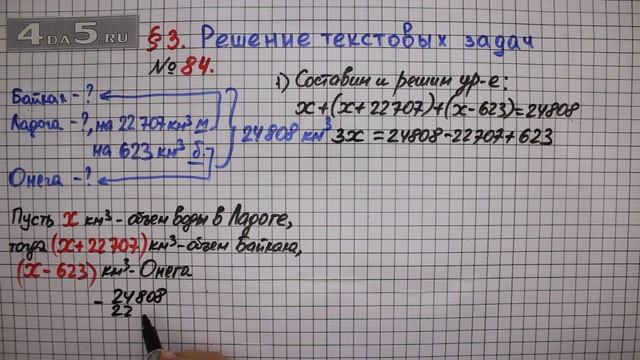 4DA5.RU
§3. Решение текстовых задач
№84.
Байкал - ?
Ладога - ?, на 22707 км³ м.
на 623 км³ б.
Онега - ?
24808 км³
1) Составим и решим ур-е:
x+(x+22707)+(x-623)=24808
3x=24808-22707+623
Пусть x км³ - объем воды в Ладоге,
тогда (x+22707) км³ - объем Байкала,
(x-623) км³ - Онега
- 24808
22